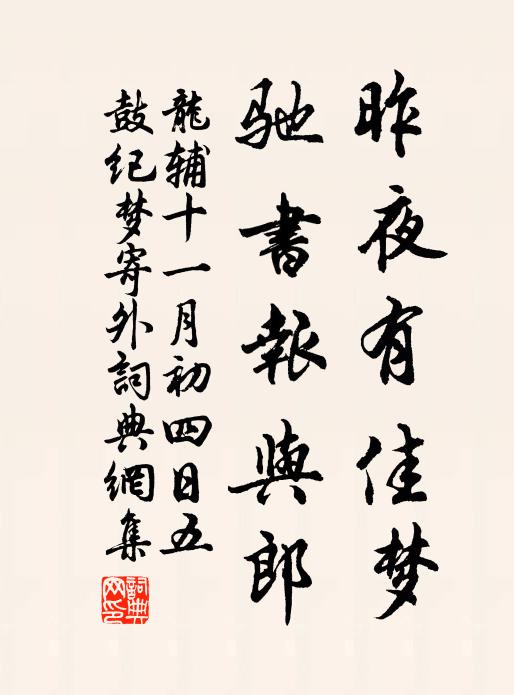 昨夜有佳梦
驰書報與郎
龍辅十一月初四日五
鼓纪梦寄外詞典網集
詞典
网印